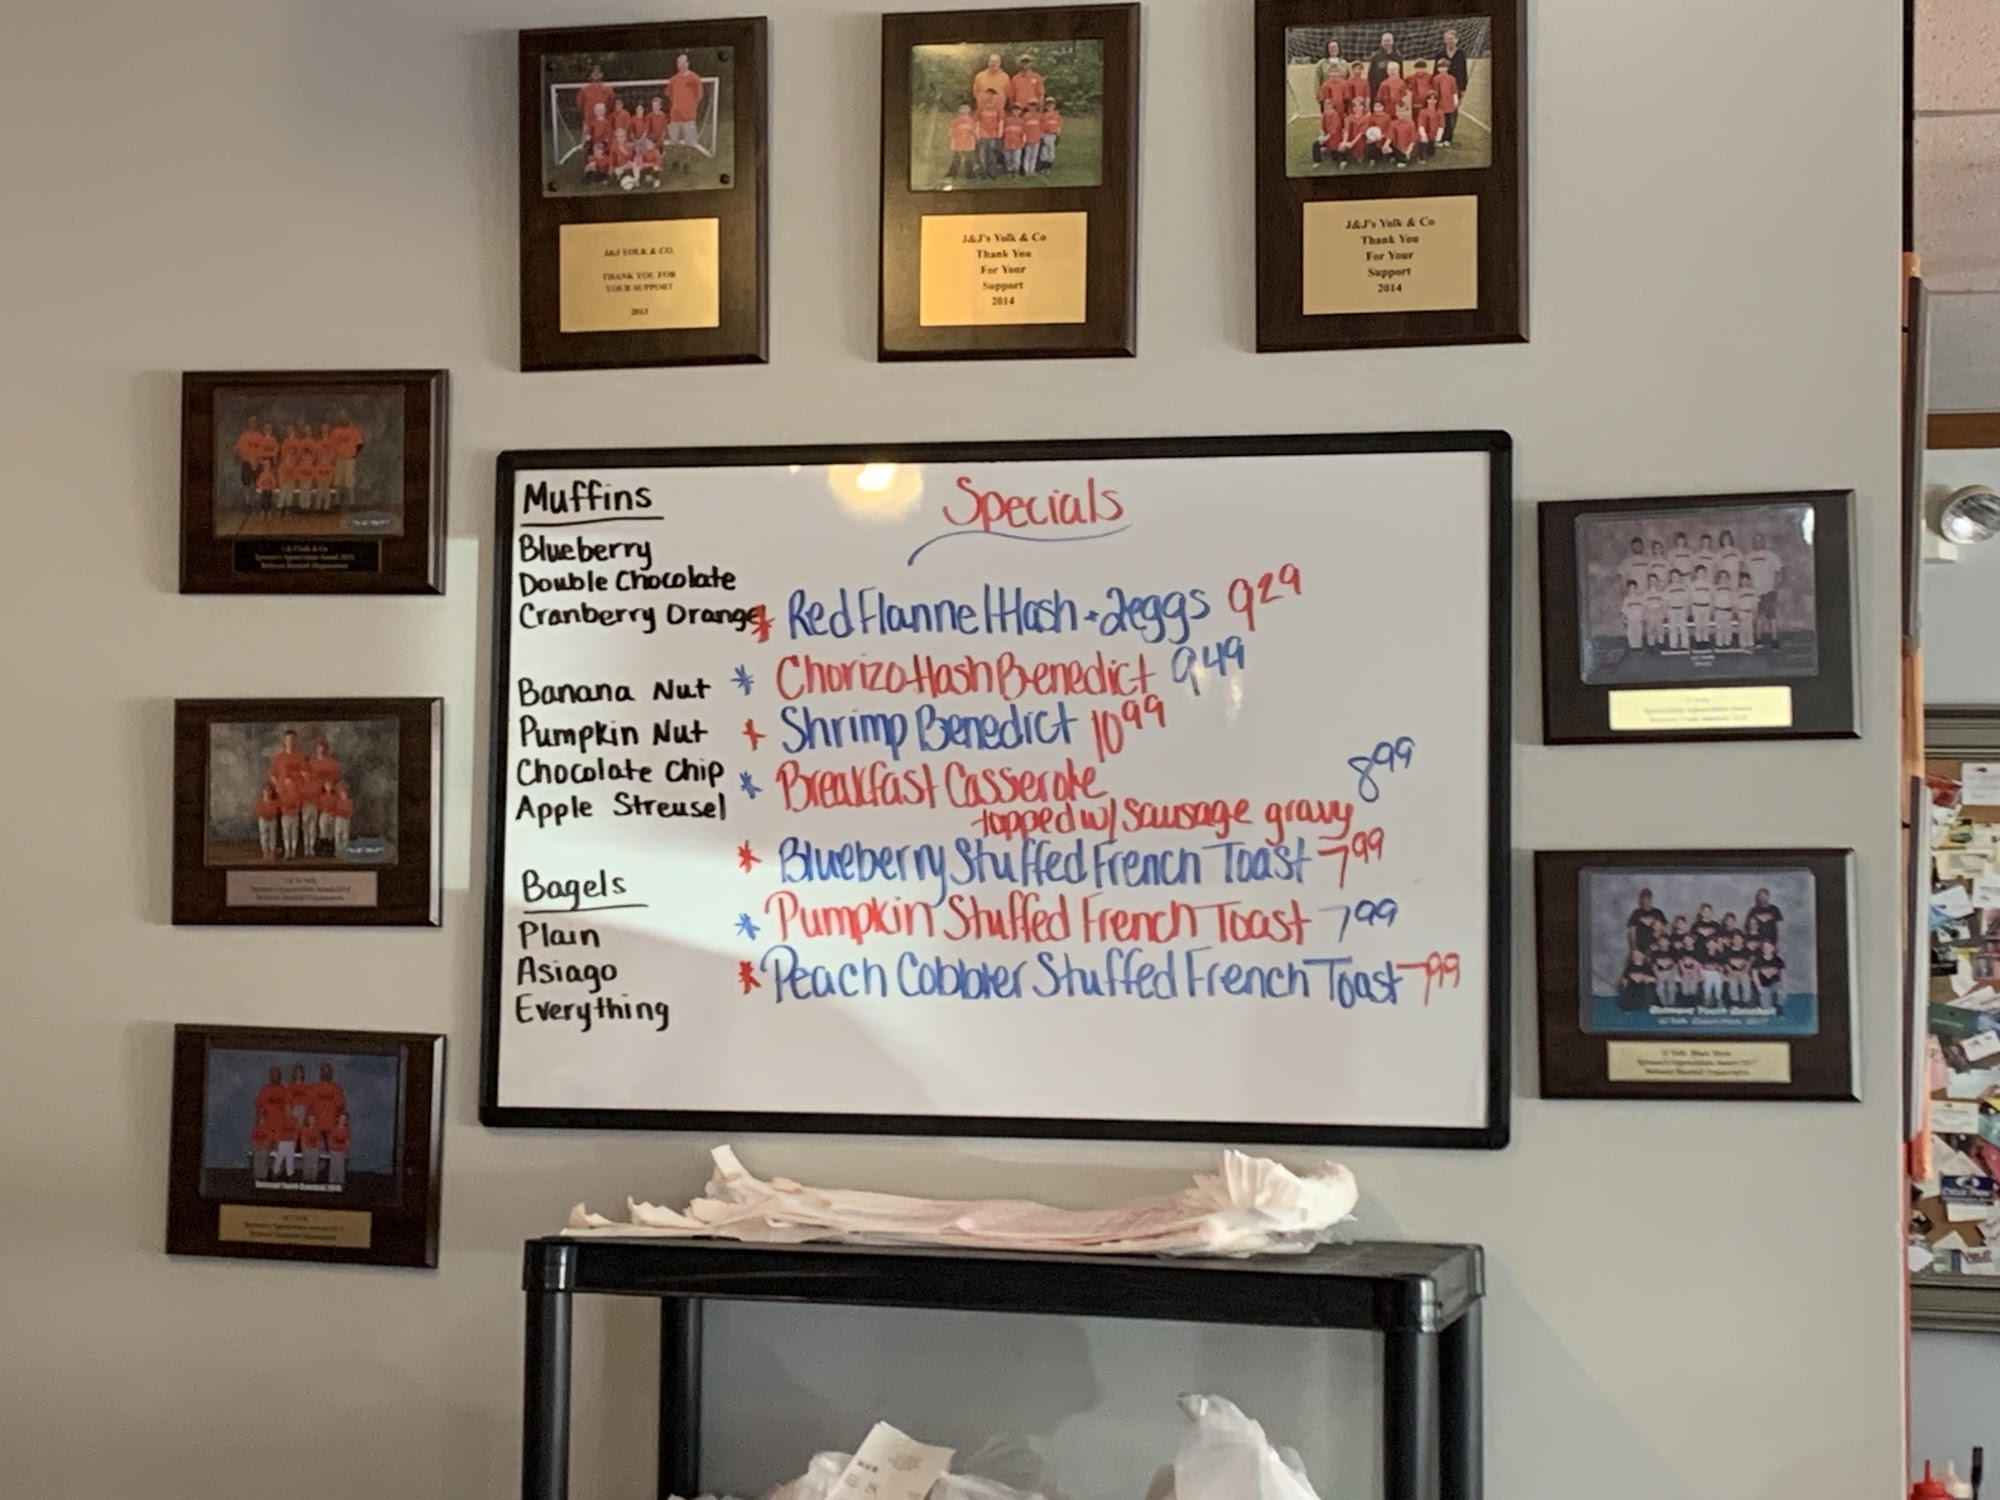 J&J YOLK & CO.
THANK YOU FOR
YOUR SUPPORT
2013
J&J's Yolk & Co
Thank You
For Your
Support
2014
J&J's Yolk & Co
Thank You
For Your
Support
2014
Muffins
Blueberry
Double Chocolate
Cranberry Orange
Banana Nut
Pumpkin Nut
Chocolate Chip
Apple Streusel
Bagels
Plain
Asiago
Everything
Specials
* Red Flannel Hash + 2eggs 9 29
* Chorizo Hash Benedict 9 49
* Shrimp Benedict 10 99
* Breakfast Casserole
topped w/ sausage gravy 8 99
* Blueberry Stuffed French Toast 7 99
* Pumpkin Stuffed French Toast 7 99
* Peach Cobbler Stuffed French Toast 7 99
Belmont Youth Baseball